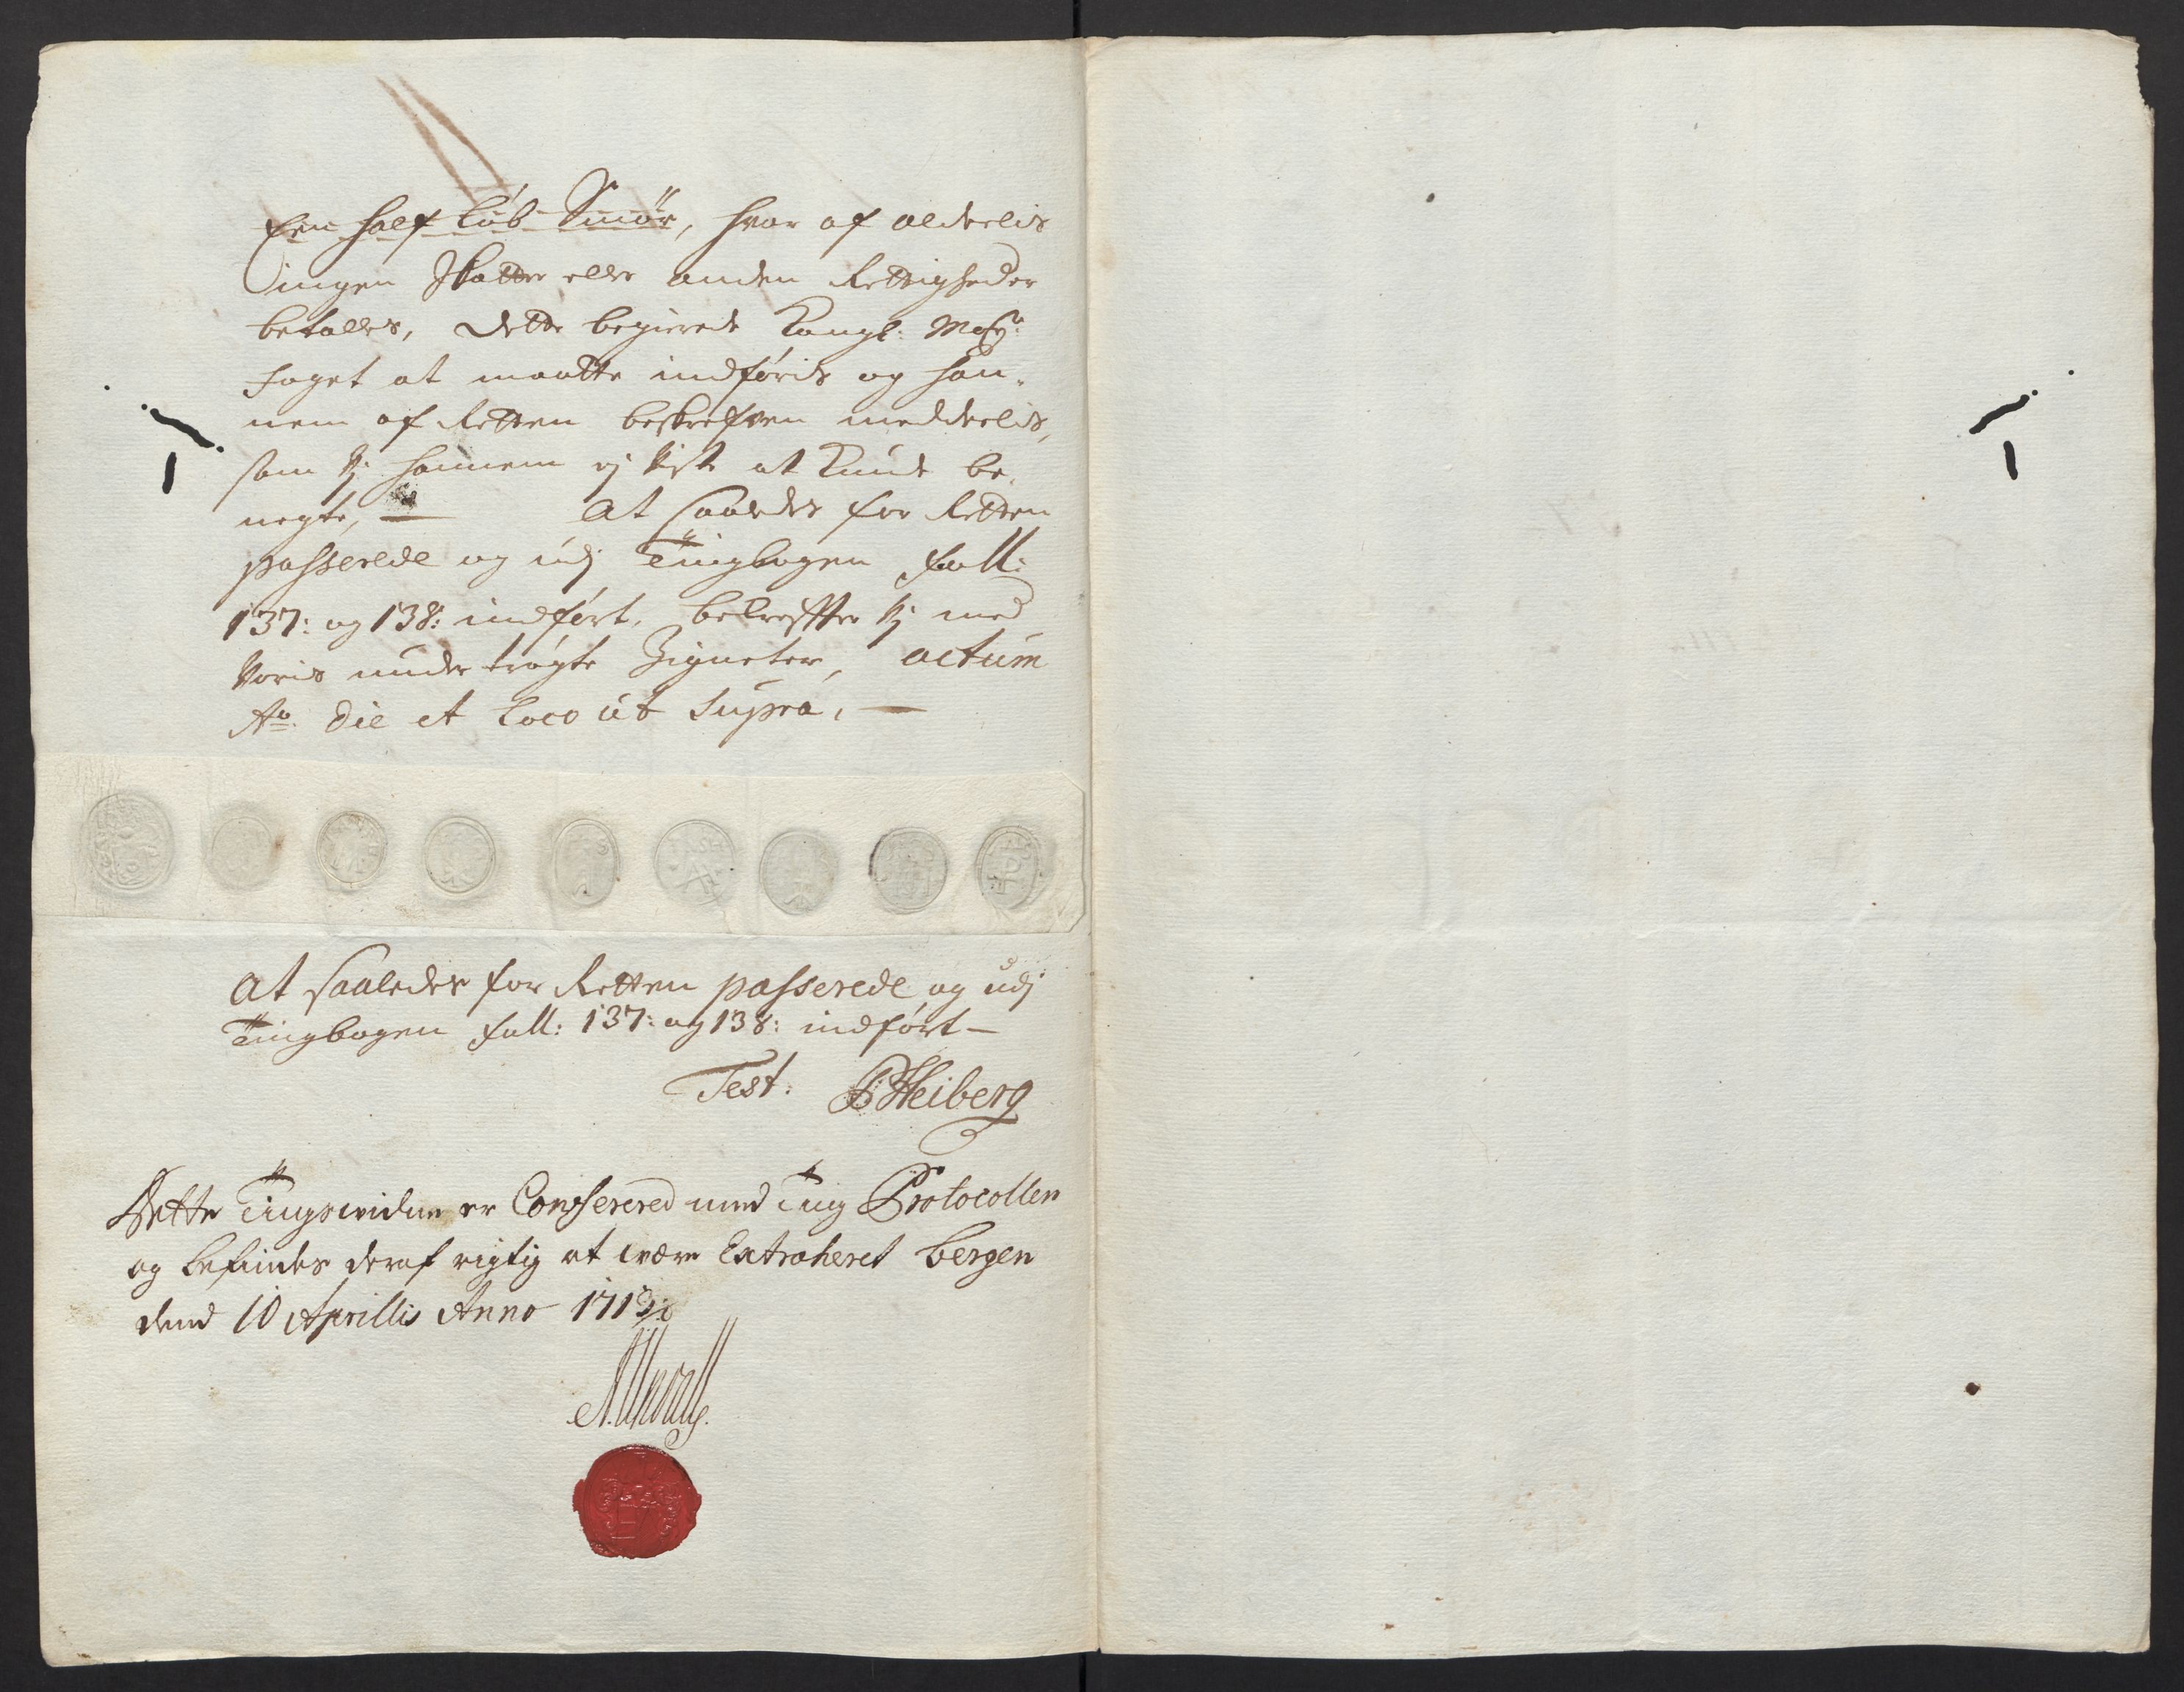 Een half Løb Smør, hvor af aldeelis
ingen Skatter eller anden Rettigheder
betalles, dette begierede Kongl: May:
Foget at maatte indføris og han-
nem af Retten beskrefven meddeelis,
som Vj hannem ej Viste at Kunde be-
negte, — At saaledes for Retten
passerede og udj Tingbogen foll:
137: og 138: indført, bekreffter Vj med
Voris under trøgte Zigneter, actum
Ao. die et Loco ut Supra, —
At saaledes for Retten passerede og udj
Tingbogen foll: 137: og 138: indført —
Test: Heiberg
Dette Tingswidne er Conferered med Ting Protocollen
og befindes deraf rigtig at være Extraheret bergen
dend 10 Aprillis Anno